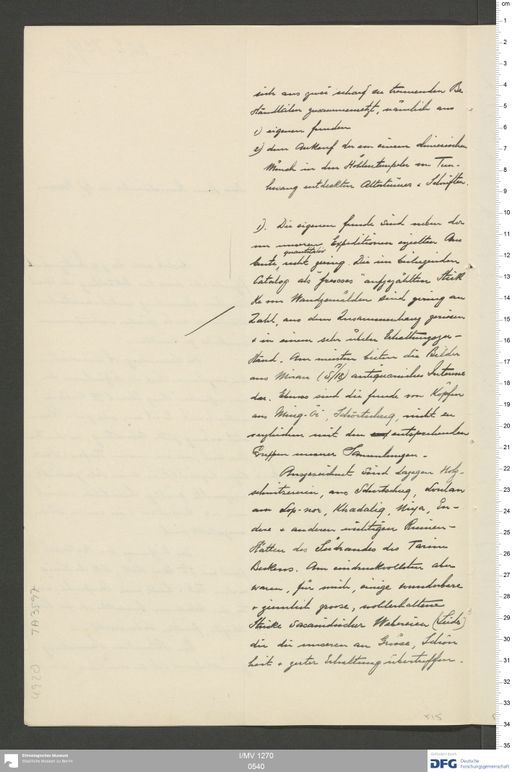 sich aus zwei scharf zu trennenden Be-
standteilen zusammensetzt, nämlich aus
1) eigenen funden
2) dem Ankauf der von einem chinesischen
Mönch in den Höhlentempeln von Tun-
huang entdeckten Altertümer & Schriften.
1). Die eigenen funde sind neben der
von unseren Expeditionen erzielten Aus-
beute, quantitativ recht gering. Die im beiliegenden
Catalog als "frescoes" aufgezählten Stük-
ke von Wandgemälden sind gering an
Zahl, aus dem Zusammenhang gerissen
& in einem sehr üblen Erhaltungszu-
stand. Am meisten bieten die Bilder
aus Miran antiquarisches Interesse
dar. Ebenso sind die funde von Köpfen
aus Ming-Öi, Schortschuq, nicht zu
vergleichen mit den entsprechenden
Gruppen unserer Sammlungen.
Ausgezeichnet sind dagegen Holz-
schnitzereien, aus Schortschuq, Loulan
am Lop-nor, Khadaliq, Niya, En-
dere & anderen wichtigen Ruinen-
stätten des Südrandes des Tarim
Beckens. Am eindruckvollsten aber
waren, für mich, einige wunderbare
& ziemlich grosse, wohlerhaltene
Stücke sasanidischer Webereien (Seide)
die die unseren an Grösse, Schön-
heit & guter Erhaltung übertreffen.
TA 3597
4920
Ethnologisches Museum
Staatliche Museen zu Berlin
I/MV 1270
0540
Gefördert durch
DFG Deutsche
Forschungsgemeinschaft